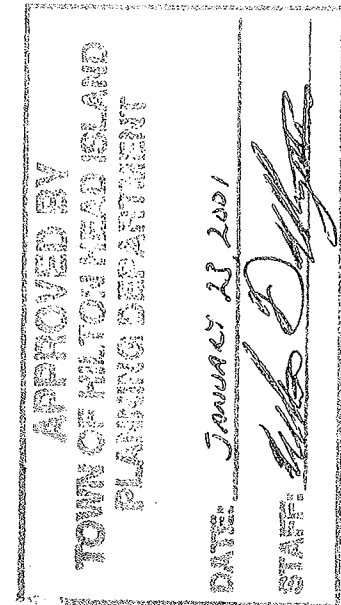 APPROVED BY
TOWN OF HILTON HEAD ISLAND
PLANNING DEPARTMENT
DATE: JANUARY 23, 2001
STAFF: